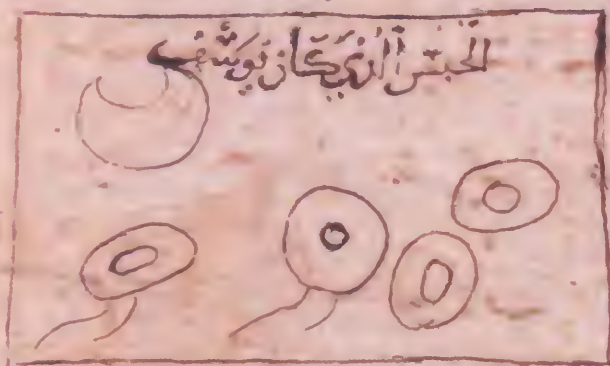 الحبس الذي كان يوسف